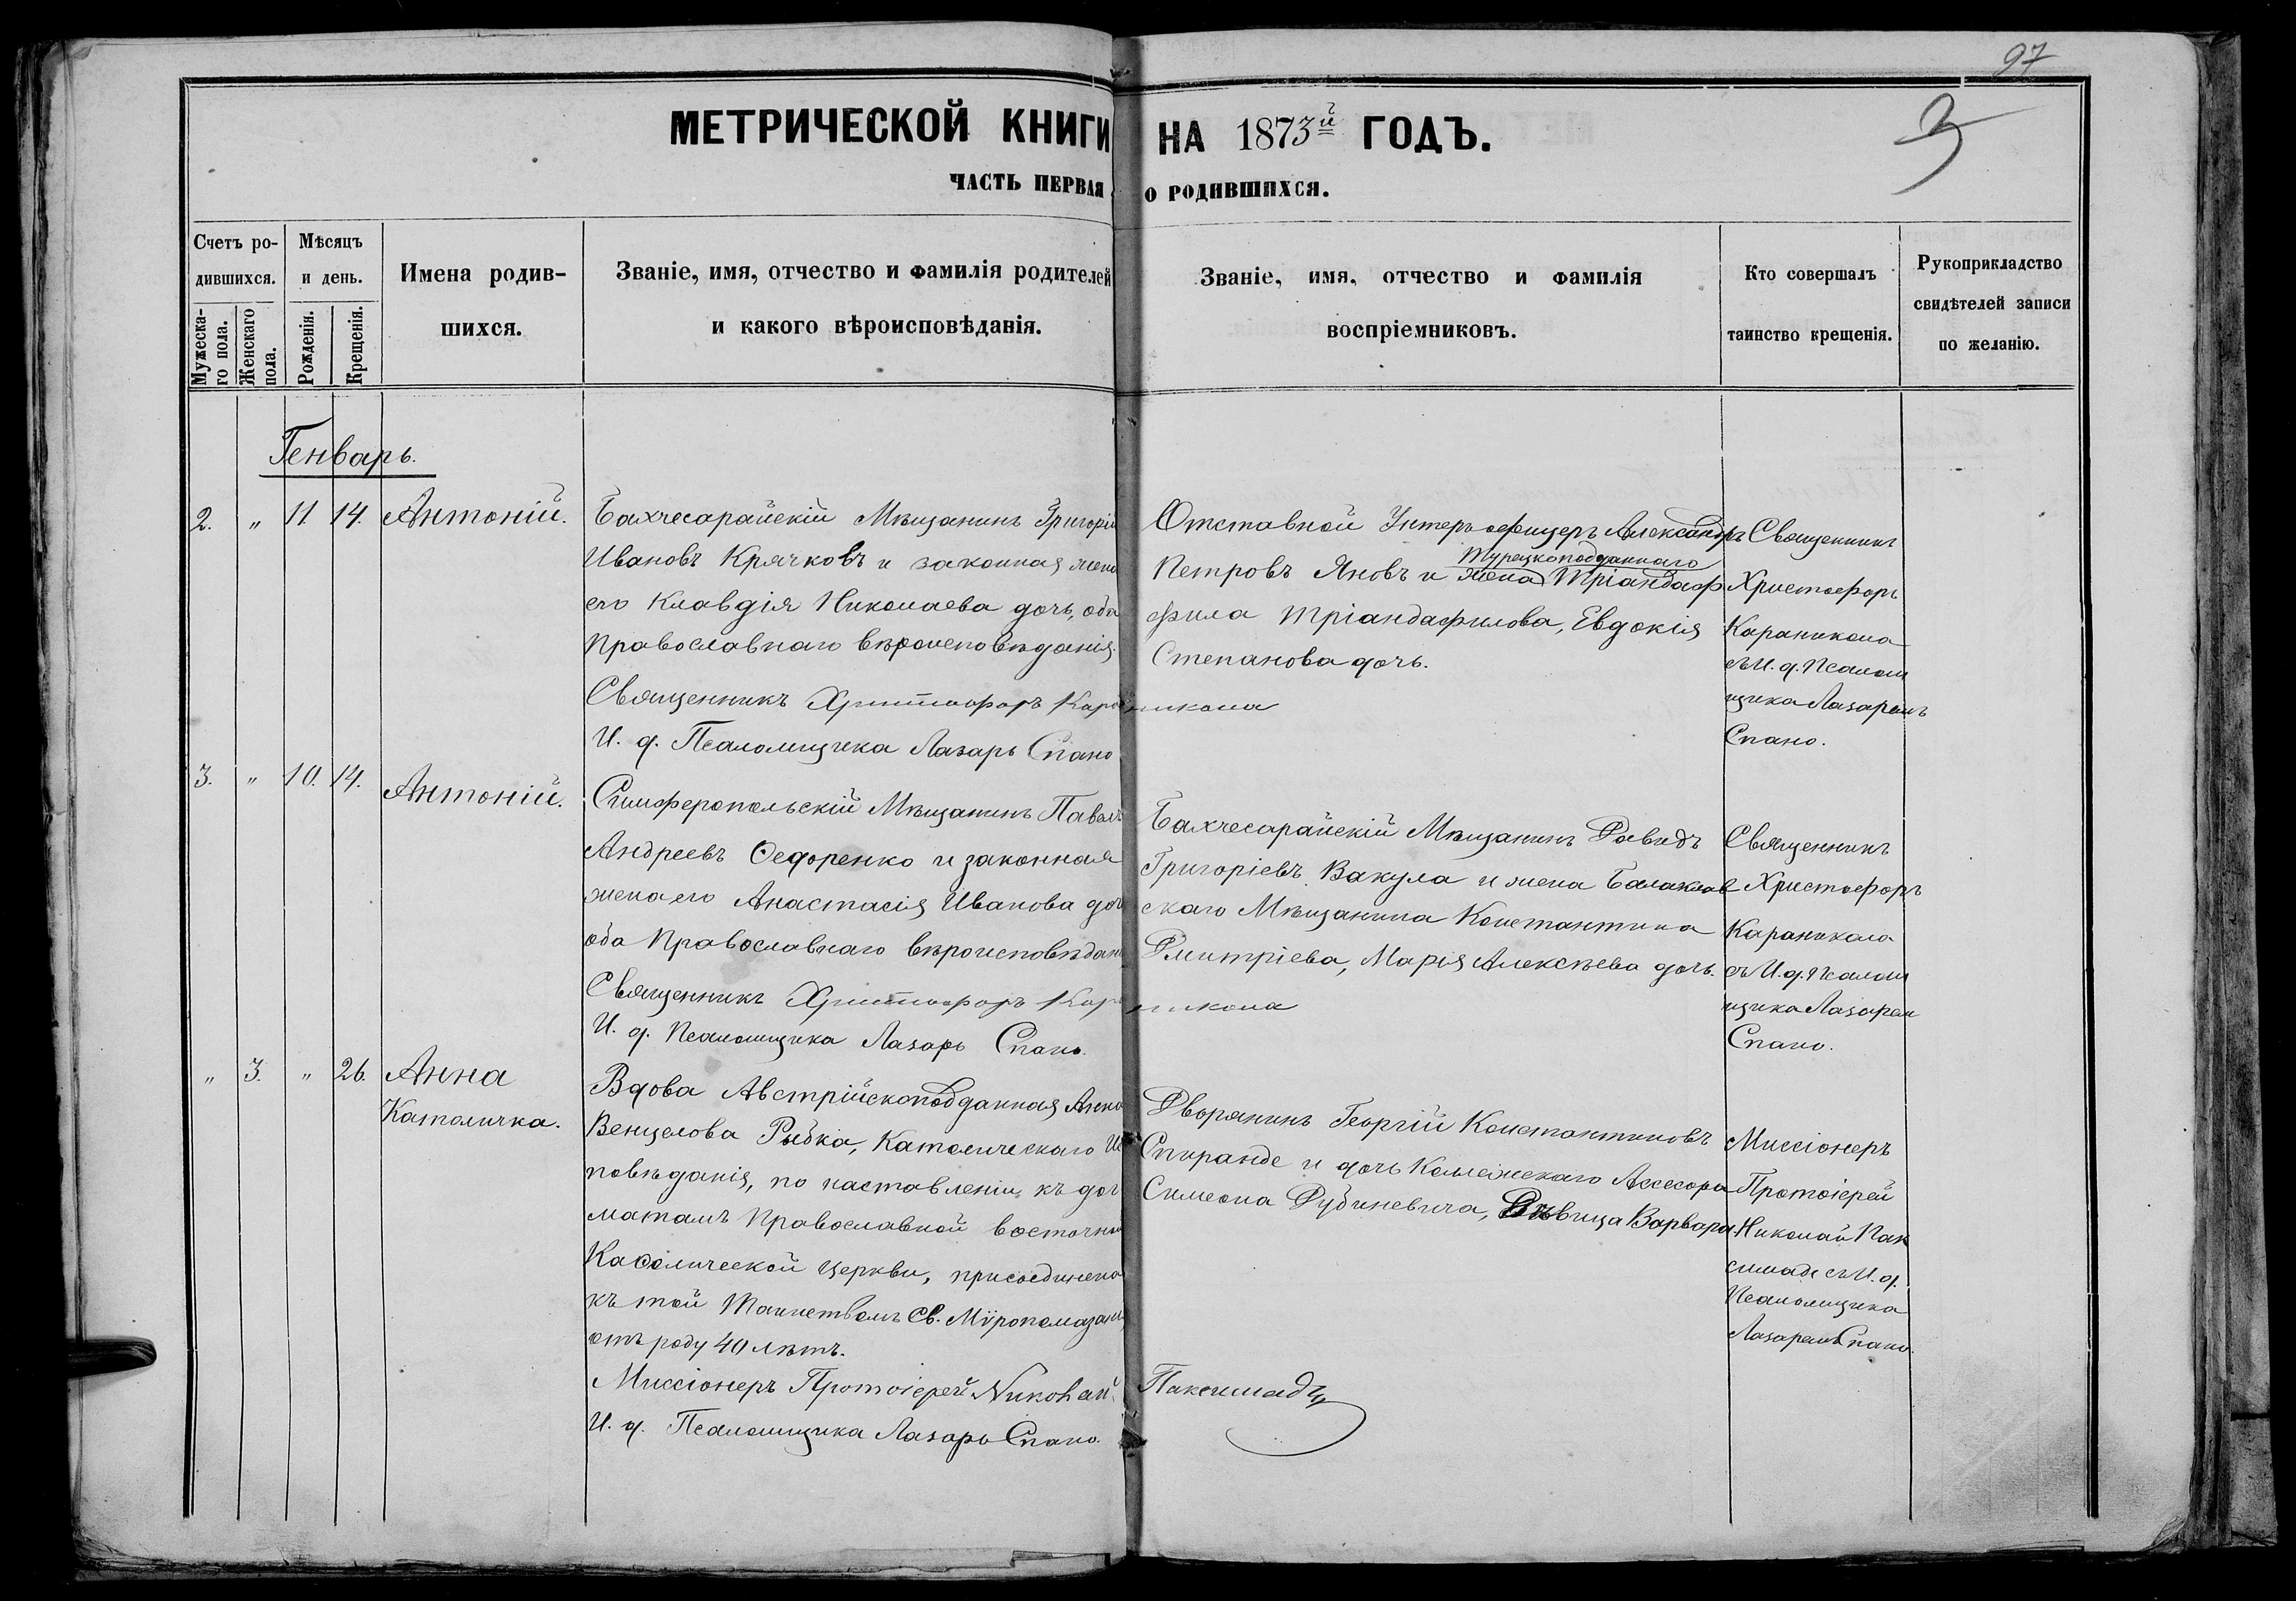 97
3
МЕТРИЧЕСКОЙ КНИГИ НА 1873й ГОДЪ.
ЧАСТЬ ПЕРВАЯ О РОДИВШИХСЯ.
Счетъ ро-
дившихся.
Мужеска-
го пола.
Женскаго
пола.
Мѣсяцъ
и день.
Рожденія.
Крещенія.
Имена родив-
шихся.
Званіе, имя, отчество и фамилія родителей
и какого вѣроисповѣданія.
Званіе, имя, отчество и фамилія
воспріемниковъ.
Кто совершалъ
таинство крещенія.
Рукоприкладство
свидѣтелей записи
по желанію.
Генварь.
2. „ 11. 14. Антоній.
Бахчесарайскій Мѣщанинъ Григорій
Ивановъ Крячковъ и законная жена
его Клавдія Николаева дочь, оба
Православнаго вѣроисповѣданія.
Священникъ Христофоръ Караникола
И. д. Псаломщика Лазарь Спано
Отставной Унтеръ офицеръ Александръ
Турецкоподданнаго
Петровъ Яновъ и жена Тріандаф
фила Тріандафилова, Евдокія
Степанова дочь.
Священникъ
Христофоръ
Караникола
съ И. д. Псалом
щика Лазаремъ
Спано.
3. „ 10. 14. Антоній.
Симферопольскій Мѣщанинъ Павелъ
Андреевъ Ѳедоренко и законная
жена его Анастасія Иванова доч
оба Православнаго вѣроисповѣдан
Священникъ Христофоръ Караникола
И. д. Псаломщика Лазарь Спано.
Бахчесарайскій Мѣщанинъ Давидъ
Григоріевъ Вакула и жена Балаклав
скаго Мѣщанина Константина
Дмитріева, Марія Алексѣева дочь.
Священникъ
Христофоръ
Караникола
съ И. д. Псалом
щика Лазарем
Спано.
„ 3. „ 26. Анна
Католичка.
Вдова Австрійскоподданная Анна
Венцелова Рыбка, Католическаго Ис
повѣданія, по наставленіи къ дог
матамъ Православной восточно
Каѳолической Церкви, присоединена
къ той Таинствомъ Св. Мѵропомазані
отъ роду 40 лѣтъ.
Миссіонеръ Протоіерей Николай Паксимади
И. д. Псаломщика Лазарь Спано.
Дворянинъ Георгій Константиновъ
Спиранде и дочь Коллежскаго Ассесора
Симеона Рубиневича, Дѣвица Варвара
Миссіонеръ
Протоіерей
Николай Пак
симади съ И. д.
Псаломщика
Лазаремъ Спано.